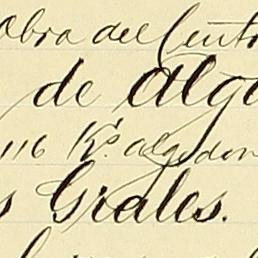 Obra del Centr
de Alg
116 Ks algodon
s Grales.